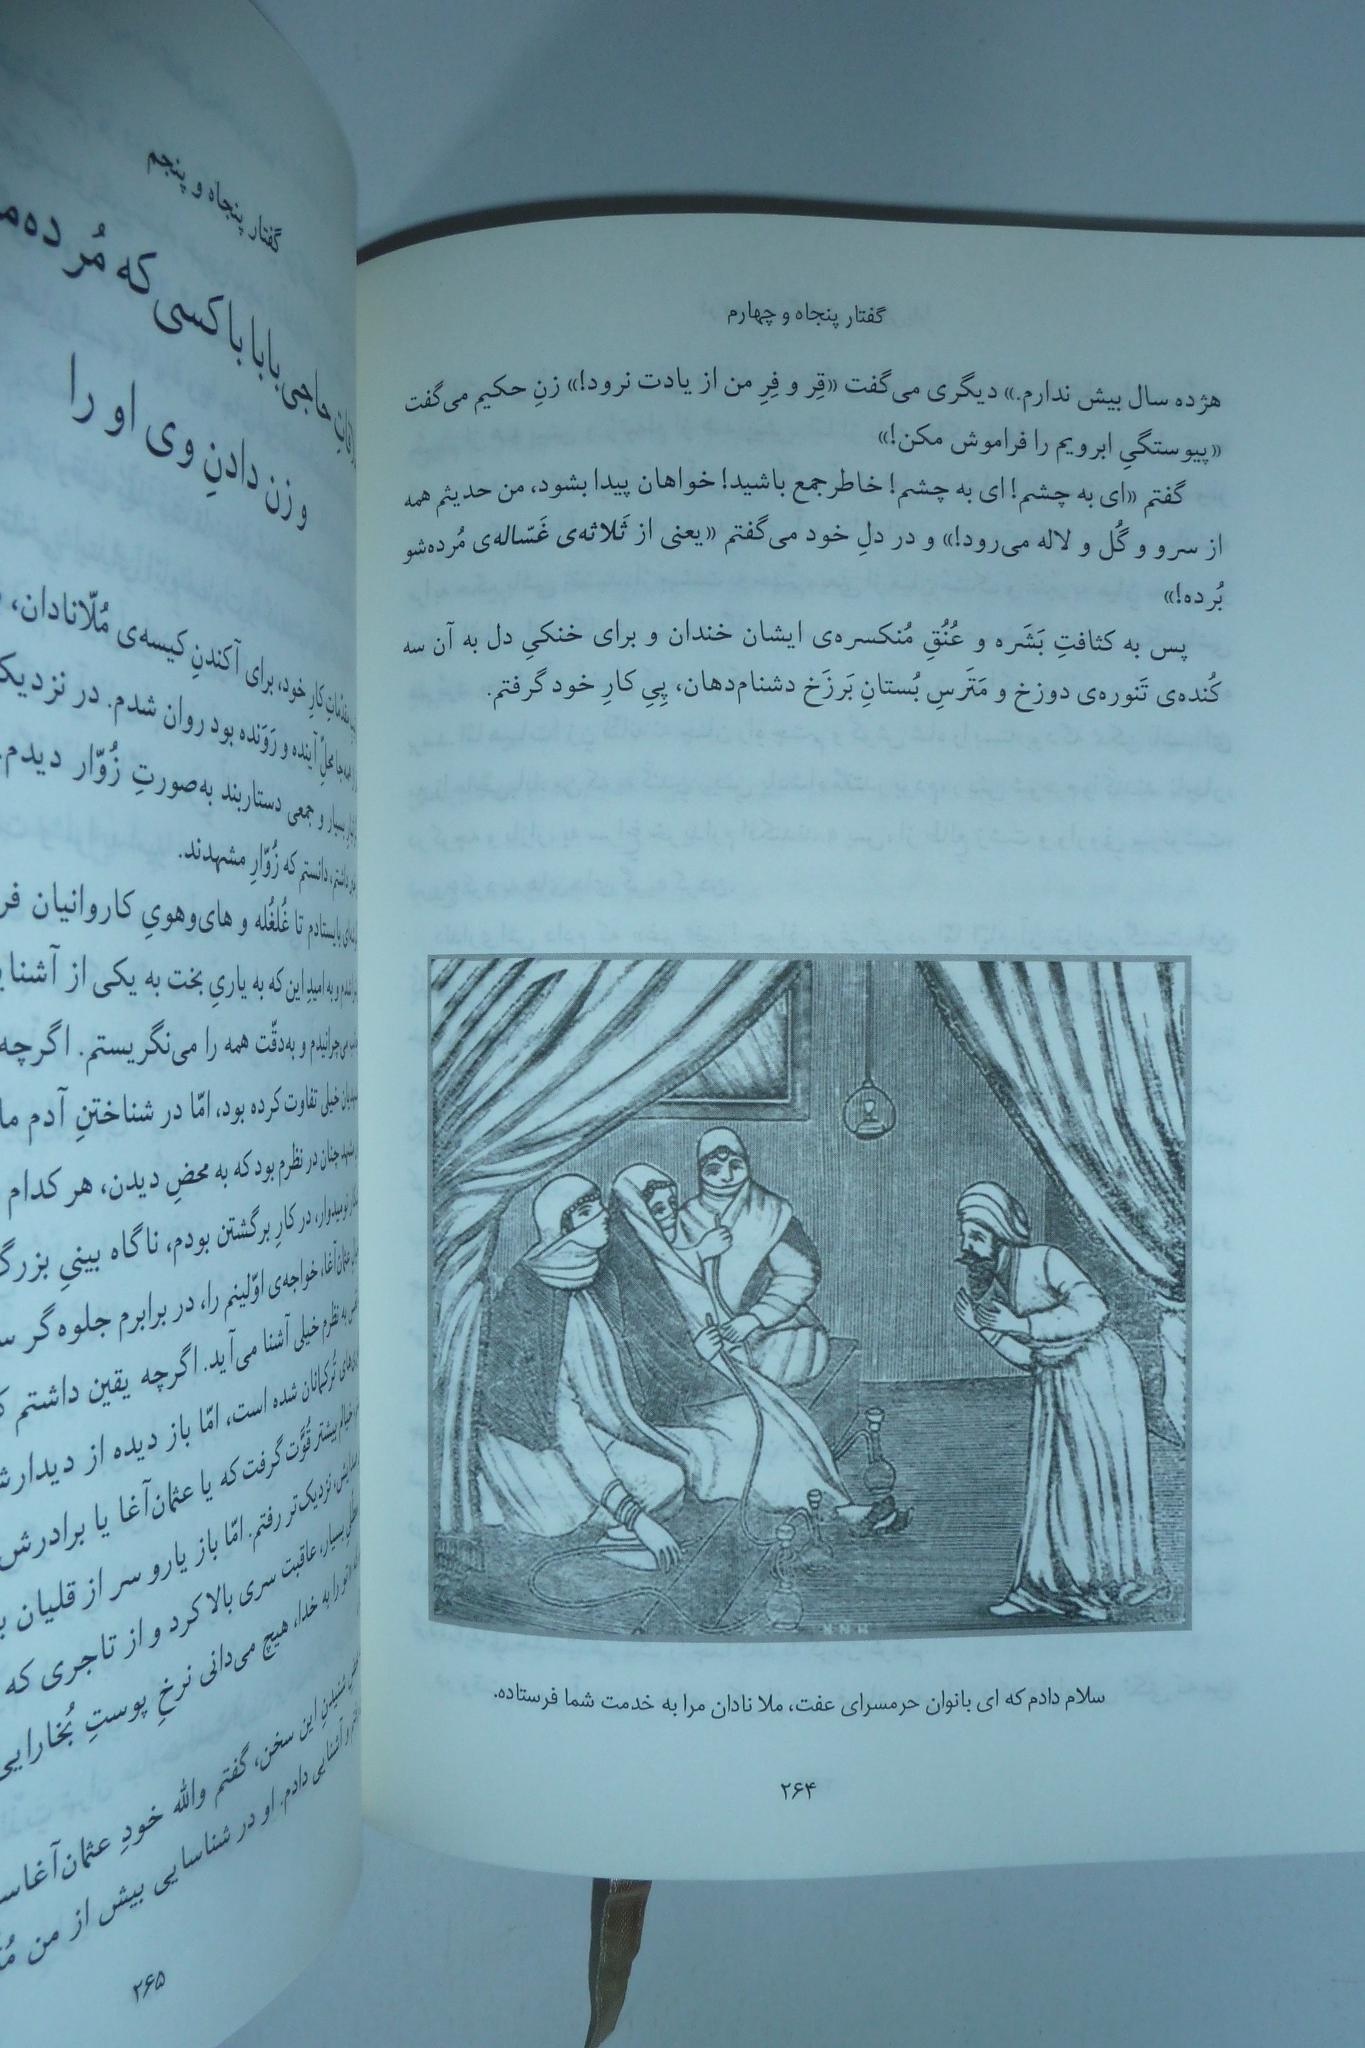 گفتار پنجاه و چهارم
هژده سال بیش ندارم.» دیگری می‌گفت «قِر و فِرِ من از یادت نرود!» زنِ حکیم می‌گفت
«پیوستگیِ ابرویم را فراموش مکن!»
گفتم «ای به چشم! ای به چشم! خاطرجمع باشید! خواهان پیدا بشود، من حدیثم همه
از سرو و گُل و لاله می‌رود!» و در دلِ خود می‌گفتم «یعنی از ثَلاثه‌ی غَسّاله‌ی مُرده‌شو
بُرده!»
پس به کثافتِ بَشَره و عُنُقِ مُنکسره‌ی ایشان خندان و برای خنکیِ دل به آن سه
کُنده‌ی تَنوره‌ی دوزخ و مَتَرسِ بُستانِ بَرزَخ دشنام‌دهان، پِیِ کارِ خود گرفتم.
HNN
سلام دادم که ای بانوان حرمسرای عفت، ملا نادان مرا به خدمت شما فرستاده.
۲۶۴
گفتار پنجاه و پنجم
حاجی‌بابا با کسی که مُرده
و زن دادنِ وی او را
کارِ خود، برای آکندنِ کیسه‌ی مُلّانادان،
آینده و رَوَنده بود روان شدم. در نزدیک
بسیار و جمعی دستاربند به‌صورتِ زُوّار دیدم.
دانستم که زُوّارِ مشهدند.
بایستادم تا غُلغُله و های‌وهویِ کاروانیان
و به امیدِ این که به یاریِ بخت به یکی از
می‌چرانیدم و به‌دقّت همه را می‌نگریستم. اگرچه
خیلی تفاوت کرده بود، امّا در شناختنِ آدم
چنان در نظرم بود که به محضِ دیدن، هر کدام
در کارِ برگشتن بودم، ناگاه بینیِ
عثمان‌آغا، خواجه‌ی اوّلینم را، در برابرم جلوه‌گر
به نظرم خیلی آشنا می‌آید. اگرچه یقین داشتم
تُرکمانان شده است، امّا باز دیده از
خیالم بیشتر قُوَّت گرفت که یا عثمان‌آغا یا برادرش
نزدیک‌تر رفتم. امّا باز یارو سر از قلیان
بسیار، عاقبت سری بالا کرد و از تاجری که
را به خدا، هیچ می‌دانی نرخِ پوستِ بُخارایی
شنیدنِ این سخن، گفتم والله خودِ عثمان‌آغا
و آشنایی دادم. او در شناسایی بیش از من
۲۶۵